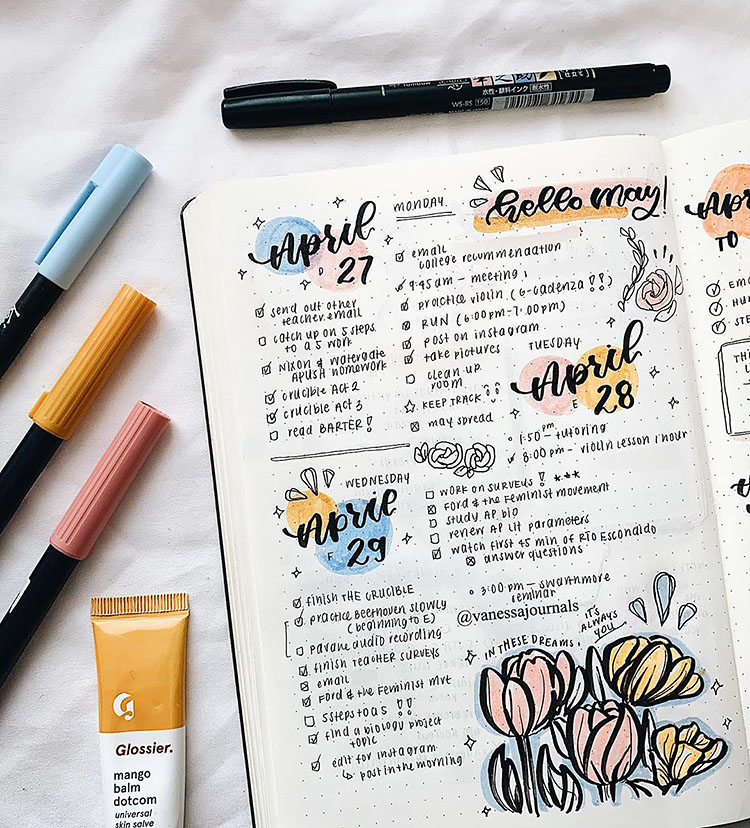 Tombow
WS-BS 150
水性・顔料インク 耐水性
MONDAY
hello may!
April
27
D
send out other
teacher email
catch up on 5 steps
to a 5 work
Nixon & watergate
APUSH homework
crucible Act 2
crucible Act 3
read BARTER!
email
college recommendation
9:45 am - meeting
practice violin (G-cadenza!!)
RUN (6:00pm-7:00pm)
post on instagram
take pictures
clean up
room
KEEP TRACK!!
may spread
TUESDAY
April
28
E
1:50 pm - tutoring
8:00 pm - violin lesson 1 hour
WORK ON SURVEYS! ***
Ford & the Feminist movement
study AP bio
review AP Lit parameters
watch first 45 min of Rio Escondido
answer questions
WEDNESDAY
April
29
F
finish THE CRUCIBLE
practice Beethoven slowly
(beginning to E)
pavane audio recording
finish TEACHER SURVEYS
email
Ford & the Feminist mvt
5 steps to a 5 !!
find a biology project
topic
edit for instagram
↳ post in the morning
3:00 pm - swarthmore
seminar
@vanessajournals
IN THESE DREAMS,
IT'S
ALWAYS
YOU
TO
Glossier.
mango
balm
dotcom
universal
skin salve